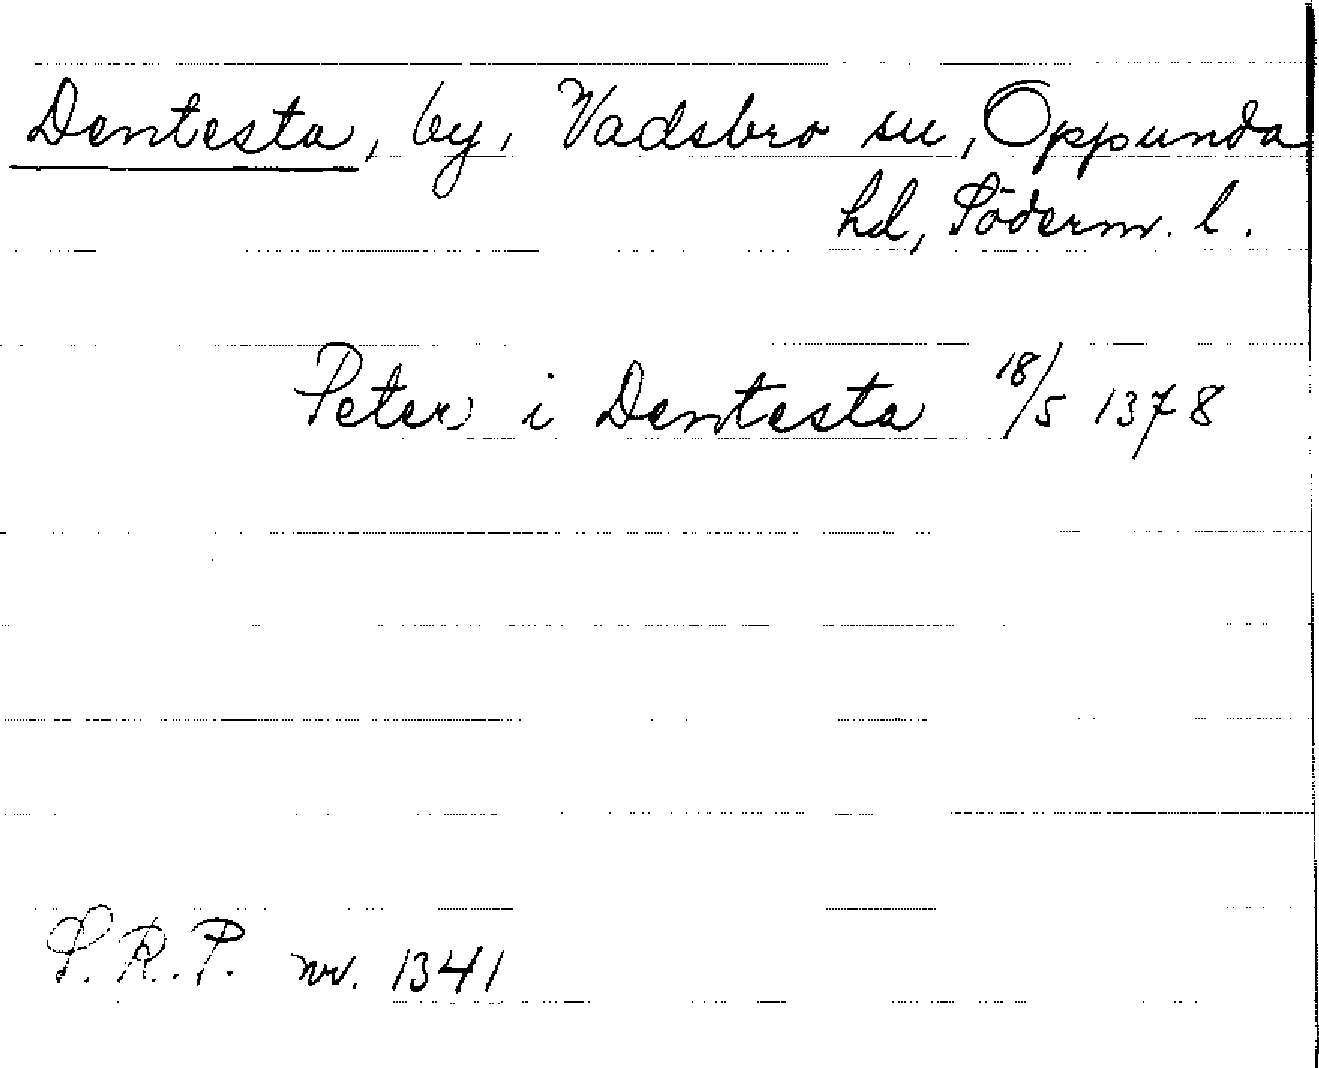 Dentesta, by, Vadsbro sn, Oppunda
hd, Söderm. l.
Peter i Dentesta 18/5 1378
S.R.P. nr. 1341